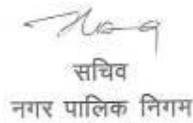 सचिव
नगर पालिक निगम